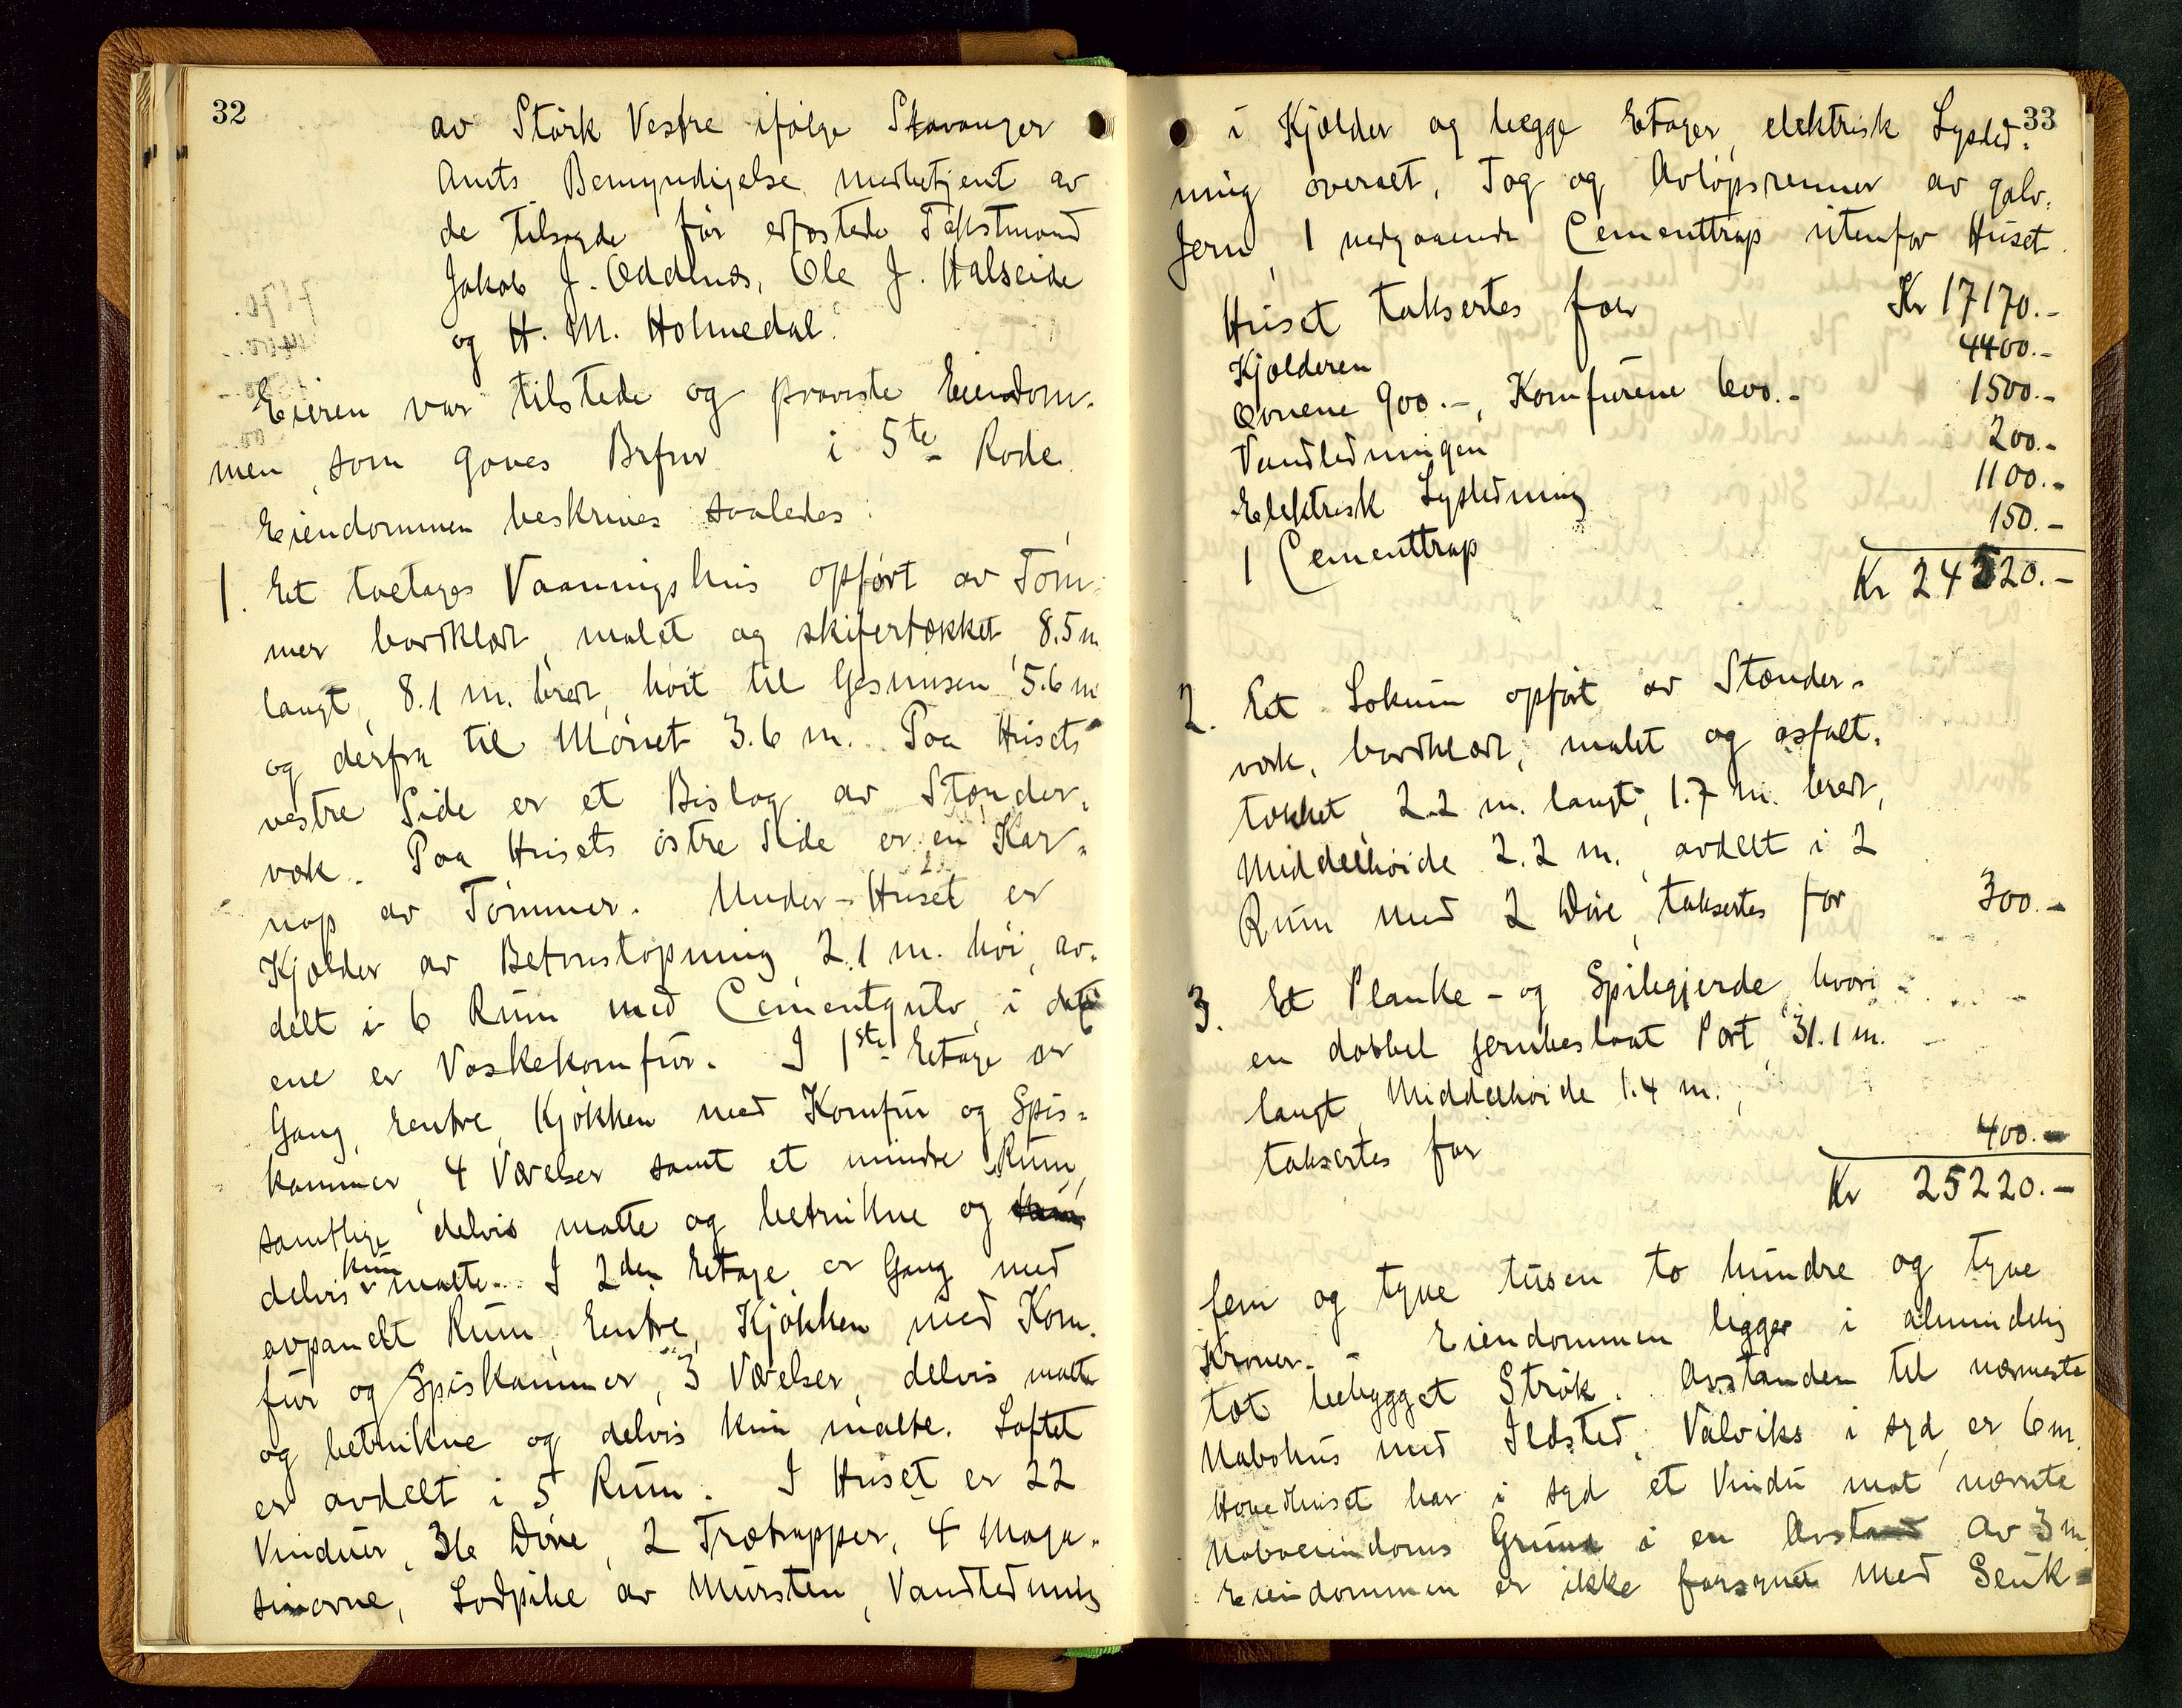 32
av Störk Vestre ifølge Stavanger
Amts Bemyndigelse, medbetjent av
de tilsagde før edfæstede Takstmænd
Jakob J. Oddenes, Ole J. Halseide
og H. M. Holmedal.
Eieren var tilstede og paaviste Eiendom-
men, som gaves Brfnr i 5te Rode.
Eiendommen beskrives saaledes:
1. Et toetages Vaaningshus opført av Töm-
mer bordklædt, malet og skifertækket, 8.5 m
langt, 8.1 m. bredt, höit til Gesimsen 5.6 m
og derfra til Mönet 3.6 m. Paa Husets
vestre Side er et Bislag av Stænder-
værk. Paa Husets östre Side er en Kar-
nap av Tömmer. Under Huset er
Kjælder av Betonstöpning, 2.1 m. höi, av-
delt i 6 Rum med Cementgulv, i det
ene er Vaskekomfur. I 1ste Etage er
Gang, Entre, Kjökken med Komfur og Spis-
kammer, 4 Værelser samt et mindre Rum,
samtlige delvis malte og betrukne og
delvis kun malte. I 2den Etage er Gang med
avpanelt Rum, Entre, Kjökken med Kom-
fur og Spiskammer, 3 Værelser, delvis malte
og betrukne og delvis kun malte. Loftet
er avdelt i 5 Rum. I Huset er 22
Vinduer, 36 Döre, 2 Trætrapper, 4 Maga-
sinovne, Lodpibe av Mursten, Vandledning
33
i Kjælder og begge Etager, elektrisk Lysled-
ning overalt, Tag og Avlöpsrenner av galv.
Jern, 1 nedgaaende Cementtrap utenfor Huset.
Huset takseres for Kr 17170.-
Kjælderen 4400.-
Ovnene 900.-, Komfurene 600.- 1500.-
Vandledningen 200.-
Elektrisk Lysledning 1100.-
1 Cementtrap 150.-
Kr 24520.-
2. Et Lokum opfört av Stænder-
værk, bordklædt, malet og asfalt-
tækket, 2.2 m. langt, 1.7 m. bredt,
Middelhöide 2.2 m., avdelt i 2
Rum med 2 Döre, takseres for 300.-
3. Et Planke- og Spilegjerde, hvori
en dobbel jernbeslaat Port, 31.1 m.
langt, Middelhöide 1.4 m.,
takseres for 400.-
Kr 25220.-
fem og tyve tusen to hundre og tyve
Kroner. - Eiendommen ligger i almindelig
tæt bebygget Strök. Avstanden til nærmeste
Nabohus med Ildsted, Valviks i syd, er 6 m.
Hovedhuset har i syd et Vindu mot nærmeste
Naboeiendoms Grund i en Avstand av 3 m.
Eiendommen er ikke forsynet med Sluk-